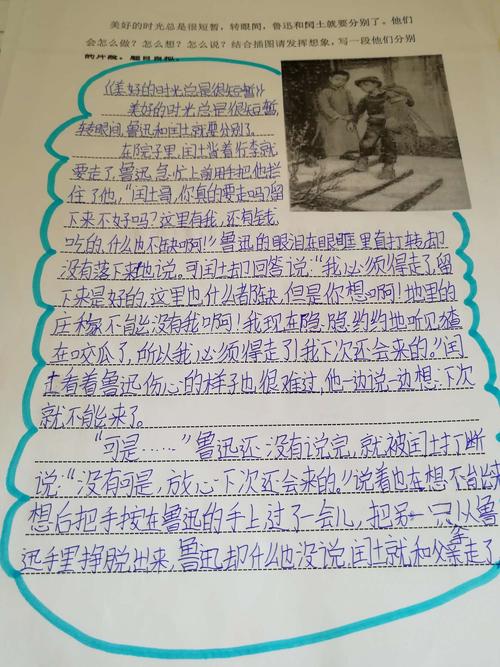 美好的时光总是很短暂，转眼间，鲁迅和闰土就要分别了。他们
会怎么做？怎么想？怎么说？结合插图请发挥想象，写一段他们分别
的片段。题目自拟。
《美好的时光总是很短暂》
美好的时光总是很短暂，
转眼间，鲁迅和闰土就要分别了。
在院子里，闰土背着行李就
要走了，鲁迅急忙上前用手把他拦
住了他，“闰土哥，你真的要走吗？留
下来不好吗？这里有我，还有钱
吃的，什么也不缺啊！”鲁迅的眼泪在眼眶里直打转却
没有落下来他说。可闰土却回答说：“我必须得走了，留
下来是好的，这里也什么都缺，但是你想啊！地里的
庄稼不能没有我啊！我现在隐隐约约地听见猹
在咬瓜了，所以我必须得走了！我下次还会来的。”闰
土看着鲁迅伤心的样子也很难过，他一边说一边想：下次
就不能来了。
“可是……”鲁迅还没有说完，就被闰土打断
说：“没有可是，放心下次还会来的。”说着也在想不能来
想后把手按在鲁迅的手上，过了一会儿，把另一只从鲁
迅手里挣脱出来，鲁迅却什么也没说，闰土就和父亲走了